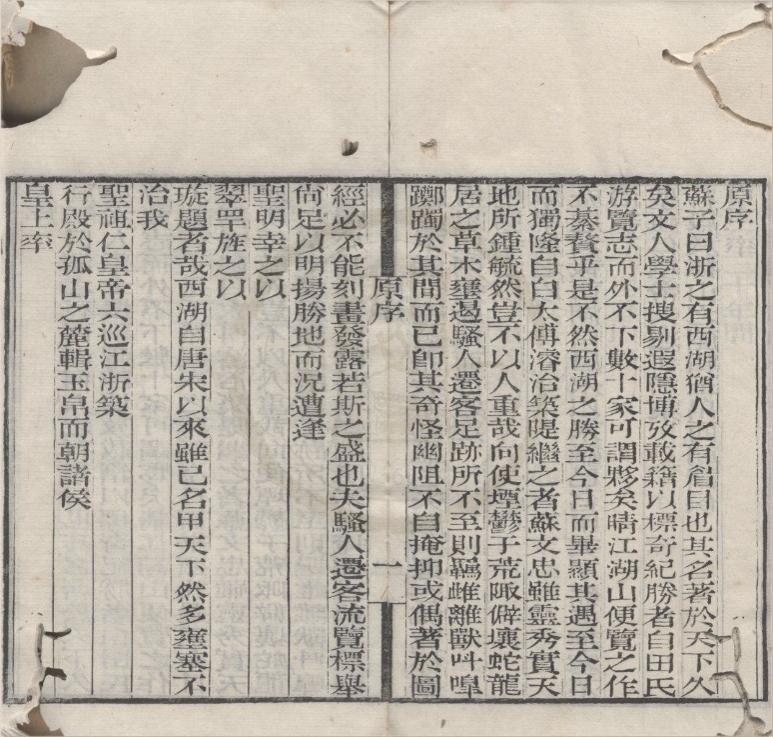 原序
蘇子曰浙之有西湖猶人之有眉目也其名著於天下久
矣文人學士搜剔遐隱博攷載籍以標奇紀勝者自田氏
游覽志而外不下數十家可謂夥矣晴江湖山便覽之作
不綦贅乎是不然西湖之勝至今日而畢顯其遇至今日
而獨隆自白太傅濬治築隄繼之者蘇文忠雖靈秀實天
地所鍾毓然豈不以人重哉向使堙鬱于荒陬僻壤蛇龍
居之草木壅遏騷人遷客足跡所不至則羈雌離獸叫嘷
躑躅於其間而已卽其奇怪幽阻不自掩抑或偶著於圖
原序
一
經必不能刻畫發露若斯之盛也夫騷人遷客流覽標舉
尙足以明揚勝地而況遭逢
聖明幸之以
翠罕旌之以
璇題者哉西湖自唐宋以來雖已名甲天下然多壅塞不
治我
聖祖仁皇帝六巡江浙築
行殿於孤山之麓輯玉帛而朝諸侯
皇上率